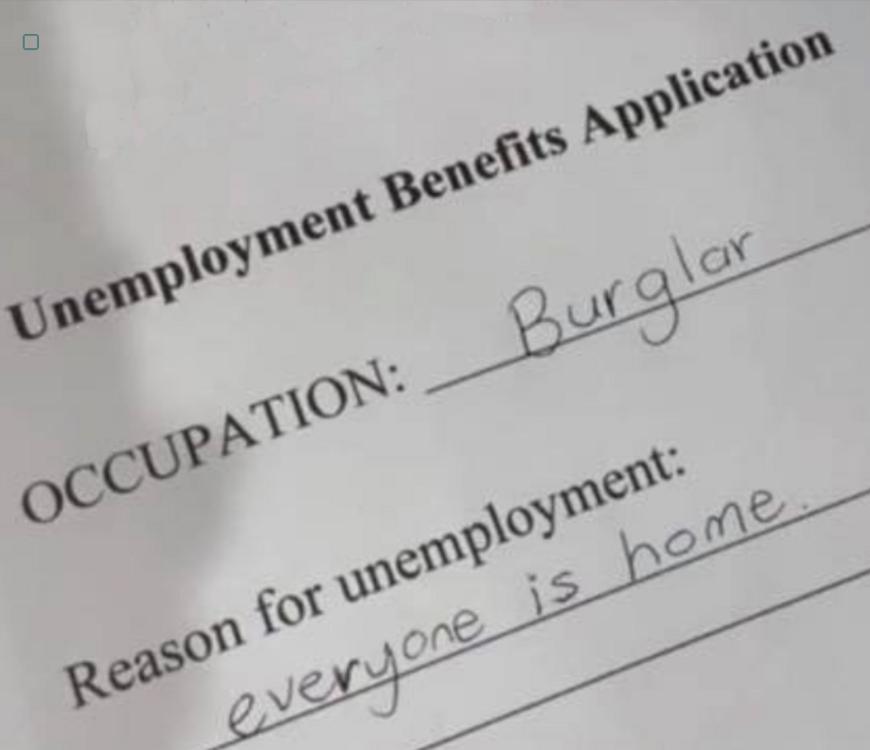 Unemployment Benefits Application
OCCUPATION: Burglar
Reason for unemployment:
everyone is home.